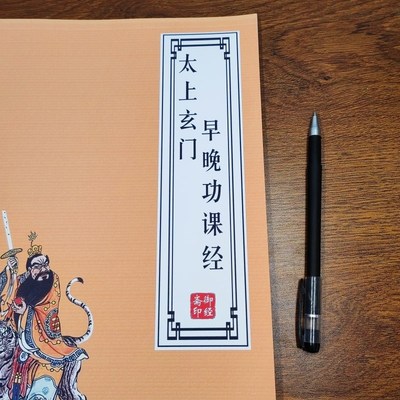 太上玄门
早晚功课经
御经斋印